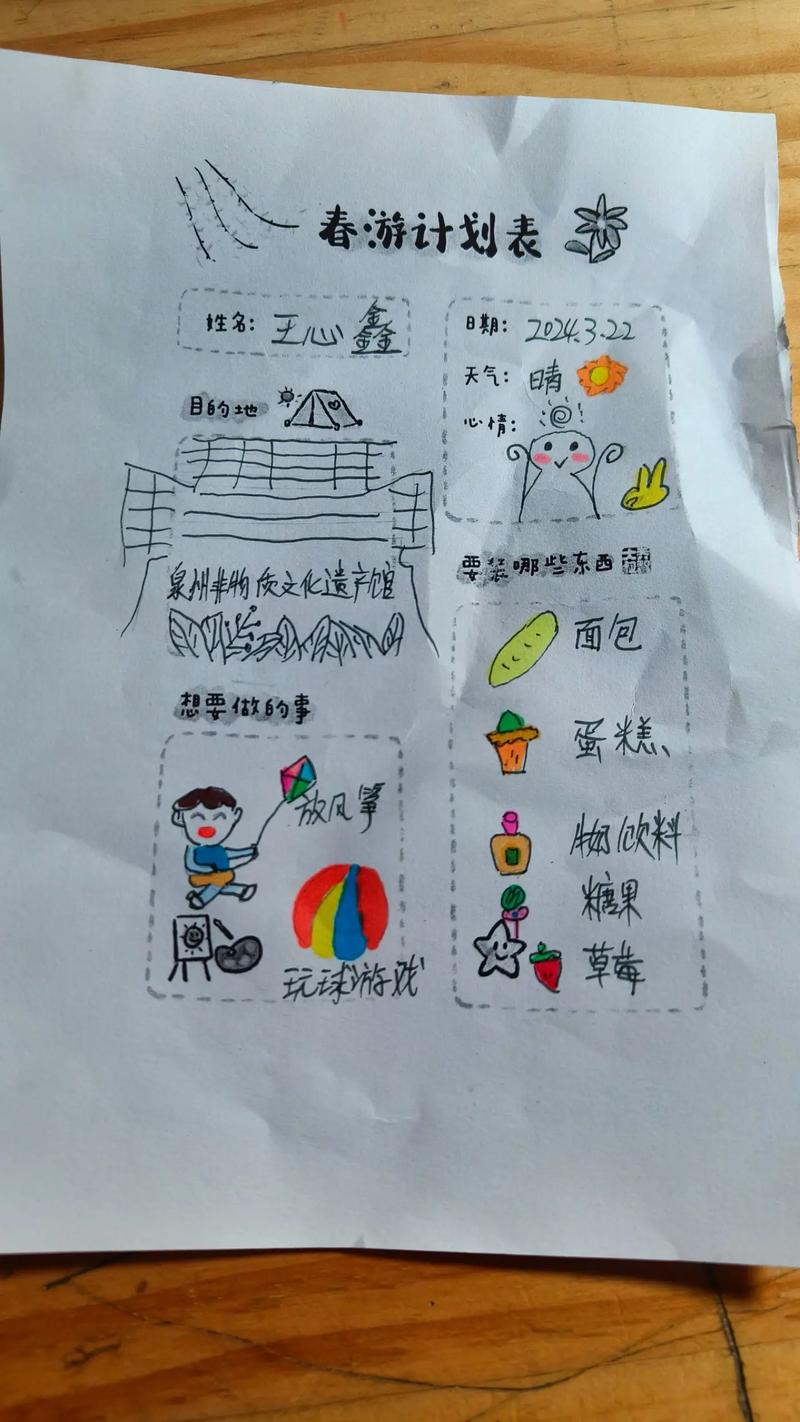 春游计划表
姓名：王心鑫
日期：2024.3.22
天气：晴
心情：
目的地
泉州非物质文化遗产馆
要装哪些东西
面包
蛋糕
牛奶饮料
糖果
草莓
想要做的事
放风筝
玩球游戏